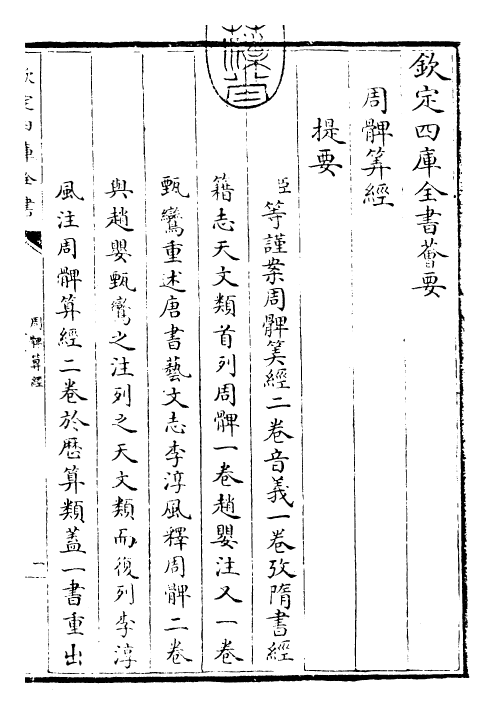 欽定四庫全書薈要
周髀筭經
提要
臣等謹案周髀筭經二卷音義一卷攷隋書經
籍志天文類首列周髀一卷趙嬰注又一卷
甄鸞重述唐書藝文志李淳風釋周髀二卷
與趙嬰甄鸞之注列之天文類而復列李淳
風注周髀算經二卷於厯算類蓋一書重出
欽定四庫全書
周髀算經
一